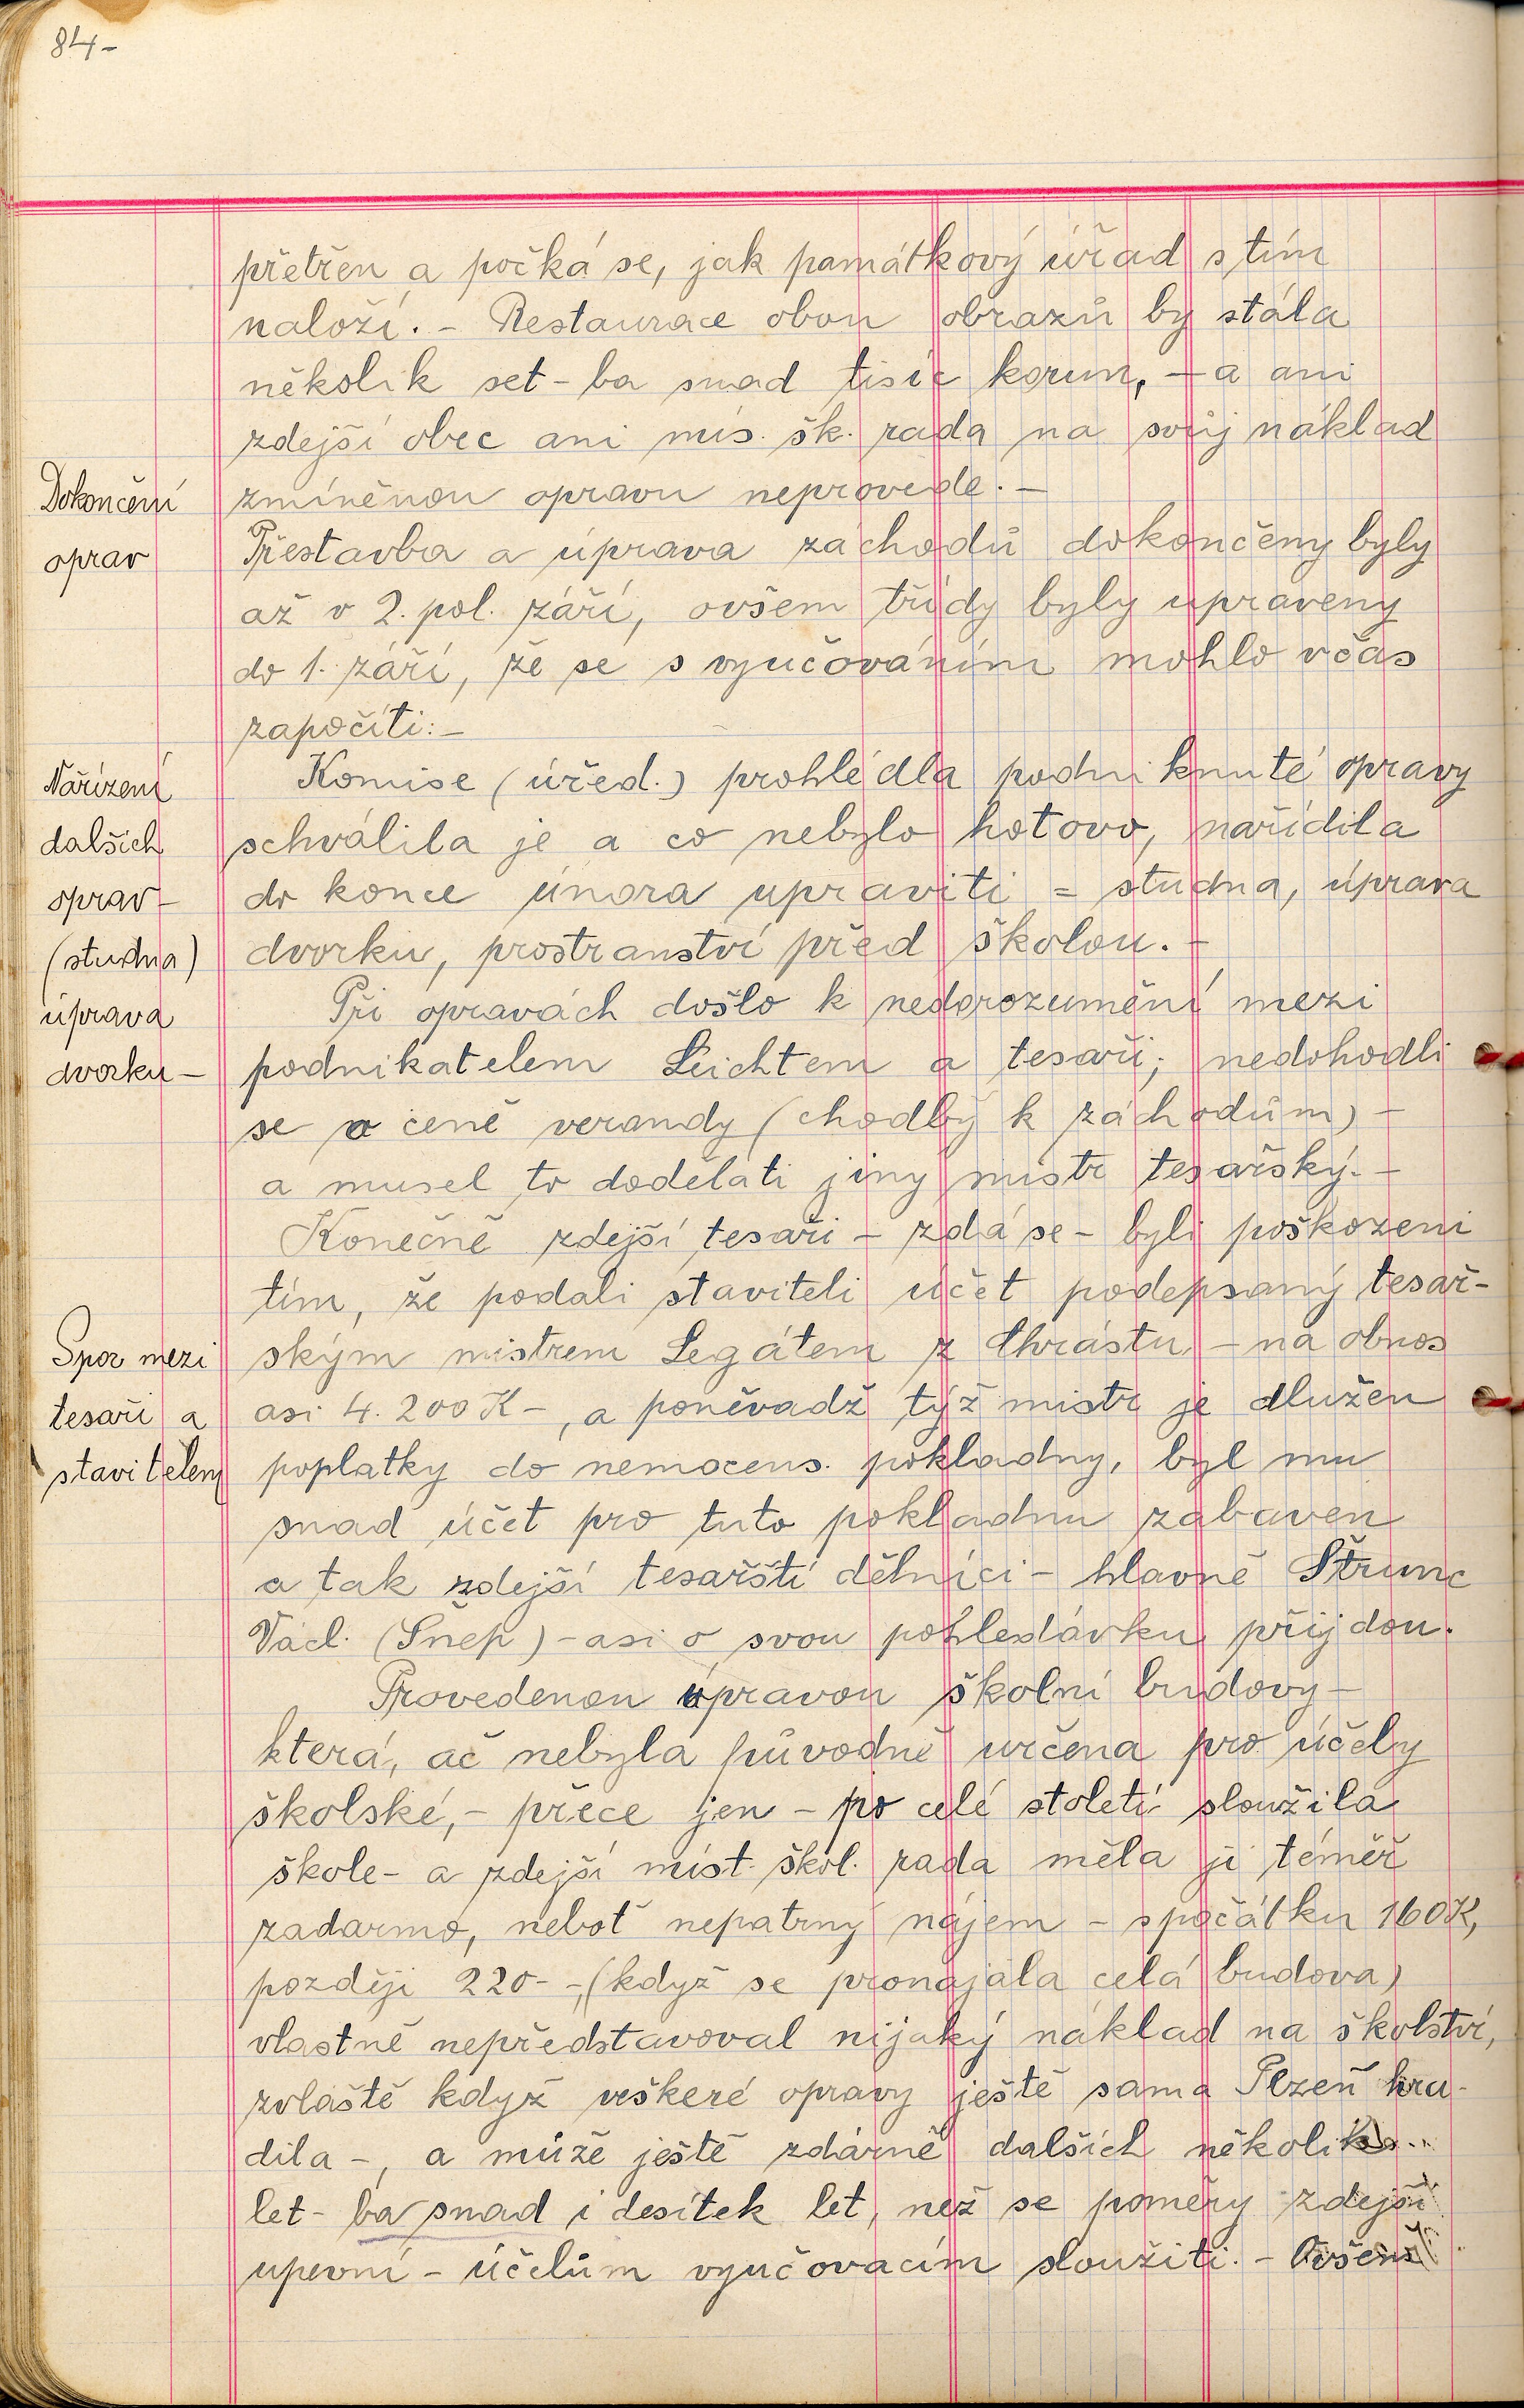 84-
přetřen a počká se, jak památkový úřad s tím
naloží. - Restaurace obou obrazů by stála
několik set - ba snad tisíc korun, - a ani
zdejší obec ani mís. šk. rada na svůj náklad
Dokončení
oprav
zmíněnou opravu neprovede. -
Přestavba a úprava záchodů dokončeny byly
až v 2. pol. září, ovšem třídy byly upraveny
do 1. září, že se s vyučováním mohlo včas
započíti: -
Nařízení
dalších
oprav -
(studna)
úprava
dvorku -
Komise (úřed.) prohlédla podniknuté opravy
schválila je a co nebylo hotovo, nařídila
do konce února upraviti = studna, úprava
dvorku, prostranství před školou. -
Při opravách došlo k nedorozumění mezi
podnikatelem Leichtem a tesaři; nedohodli
se o ceně verandy (chodby k záchodům) -
a musel to dodělati jiný mistr tesařský. -
Konečně zdejší tesaři - zdá se - byli poškozeni
tím, že podali staviteli účet podepsaný tesař-
Spor mezi
tesaři a
stavitelem
ským mistrem Legátem z Chrástu - na obnos
asi 4.200 K -, a poněvadž týž mistr je dlužen
poplatky do nemocens. pokladny, byl mu
snad účet pro tuto pokladnu zabaven
a tak zdejší tesařští dělníci - hlavně Štrunc
Václ. (Šnep) - asi o svou pohledávku přijdou.
Provedenou úpravou školní budovy -
která, ač nebyla původně určena pro účely
školské, - přece jen - po celé století sloužila
škole - a zdejší míst. škol. rada měla ji téměř
zadarmo, neboť nepatrný nájem - spočátku 160 K,
později 220 - , (když se pronajala celá budova)
vlastně nepředstavoval nijaký náklad na školství,
zvláště když veškeré opravy ještě sama Plzeň hra-
dila -, a může ještě zdárně dalších několik
let - ba snad i desítek let, než se poměry zdejší
upevní - účelům vyučovacím sloužiti. - Ovšem